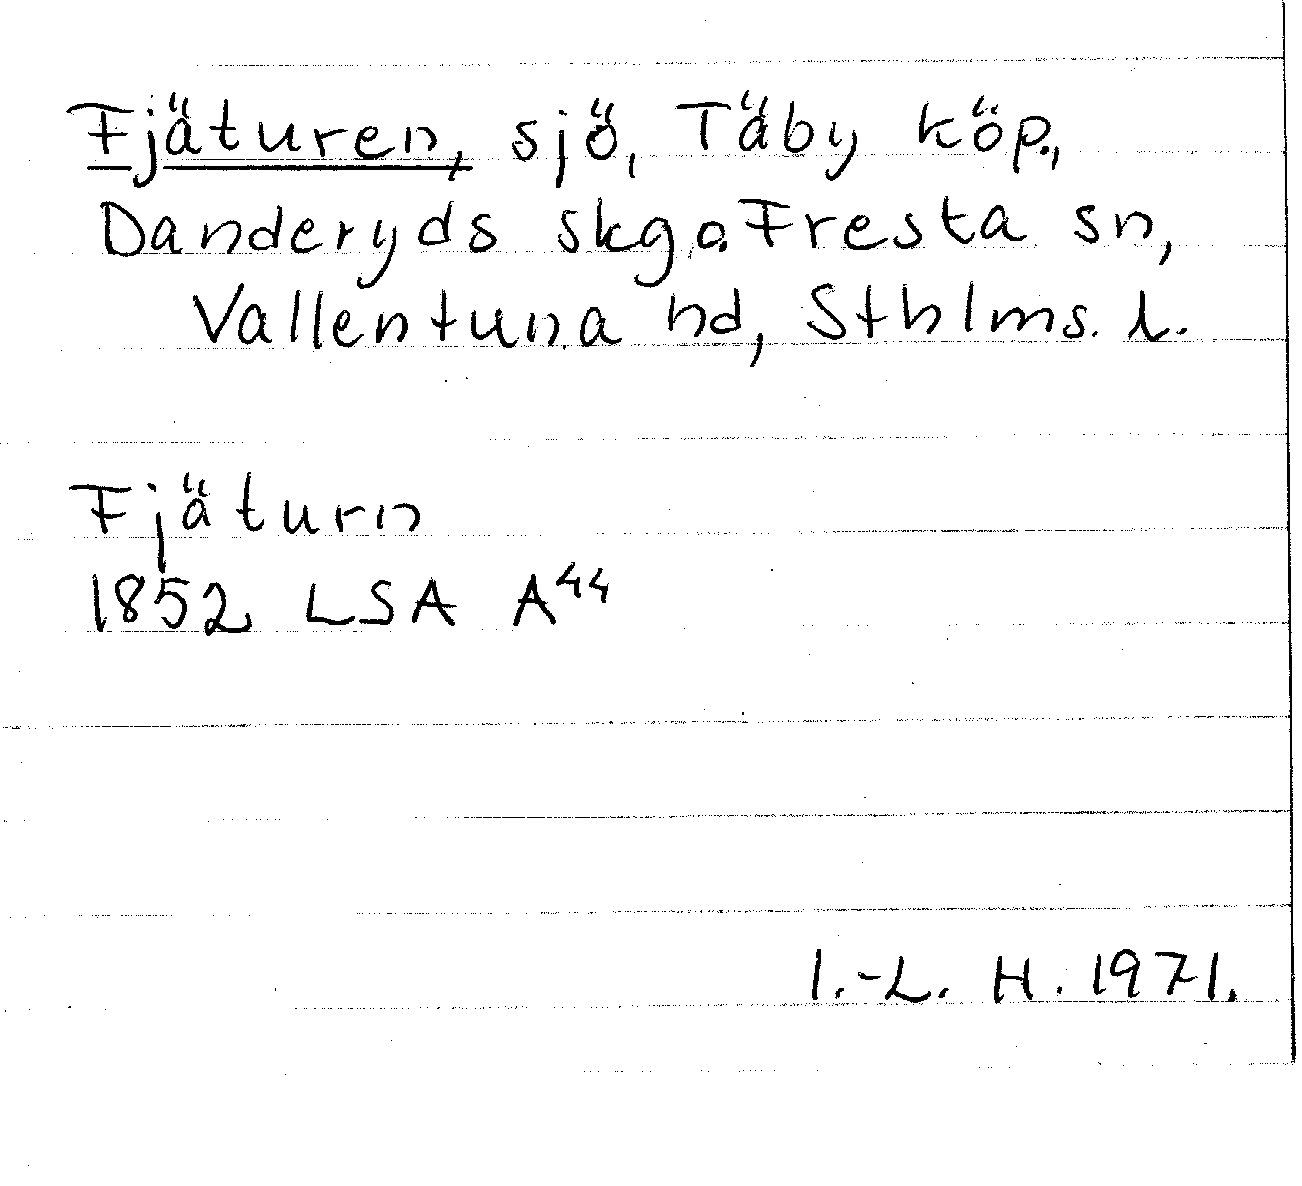 Fjäturen, sjö, Täby köp.,
Danderyds skg o. Fresta sn,
Vallentuna hd, Sthlms. l.
Fjäturn
1852 LSA A44
I.-L. H. 1971.